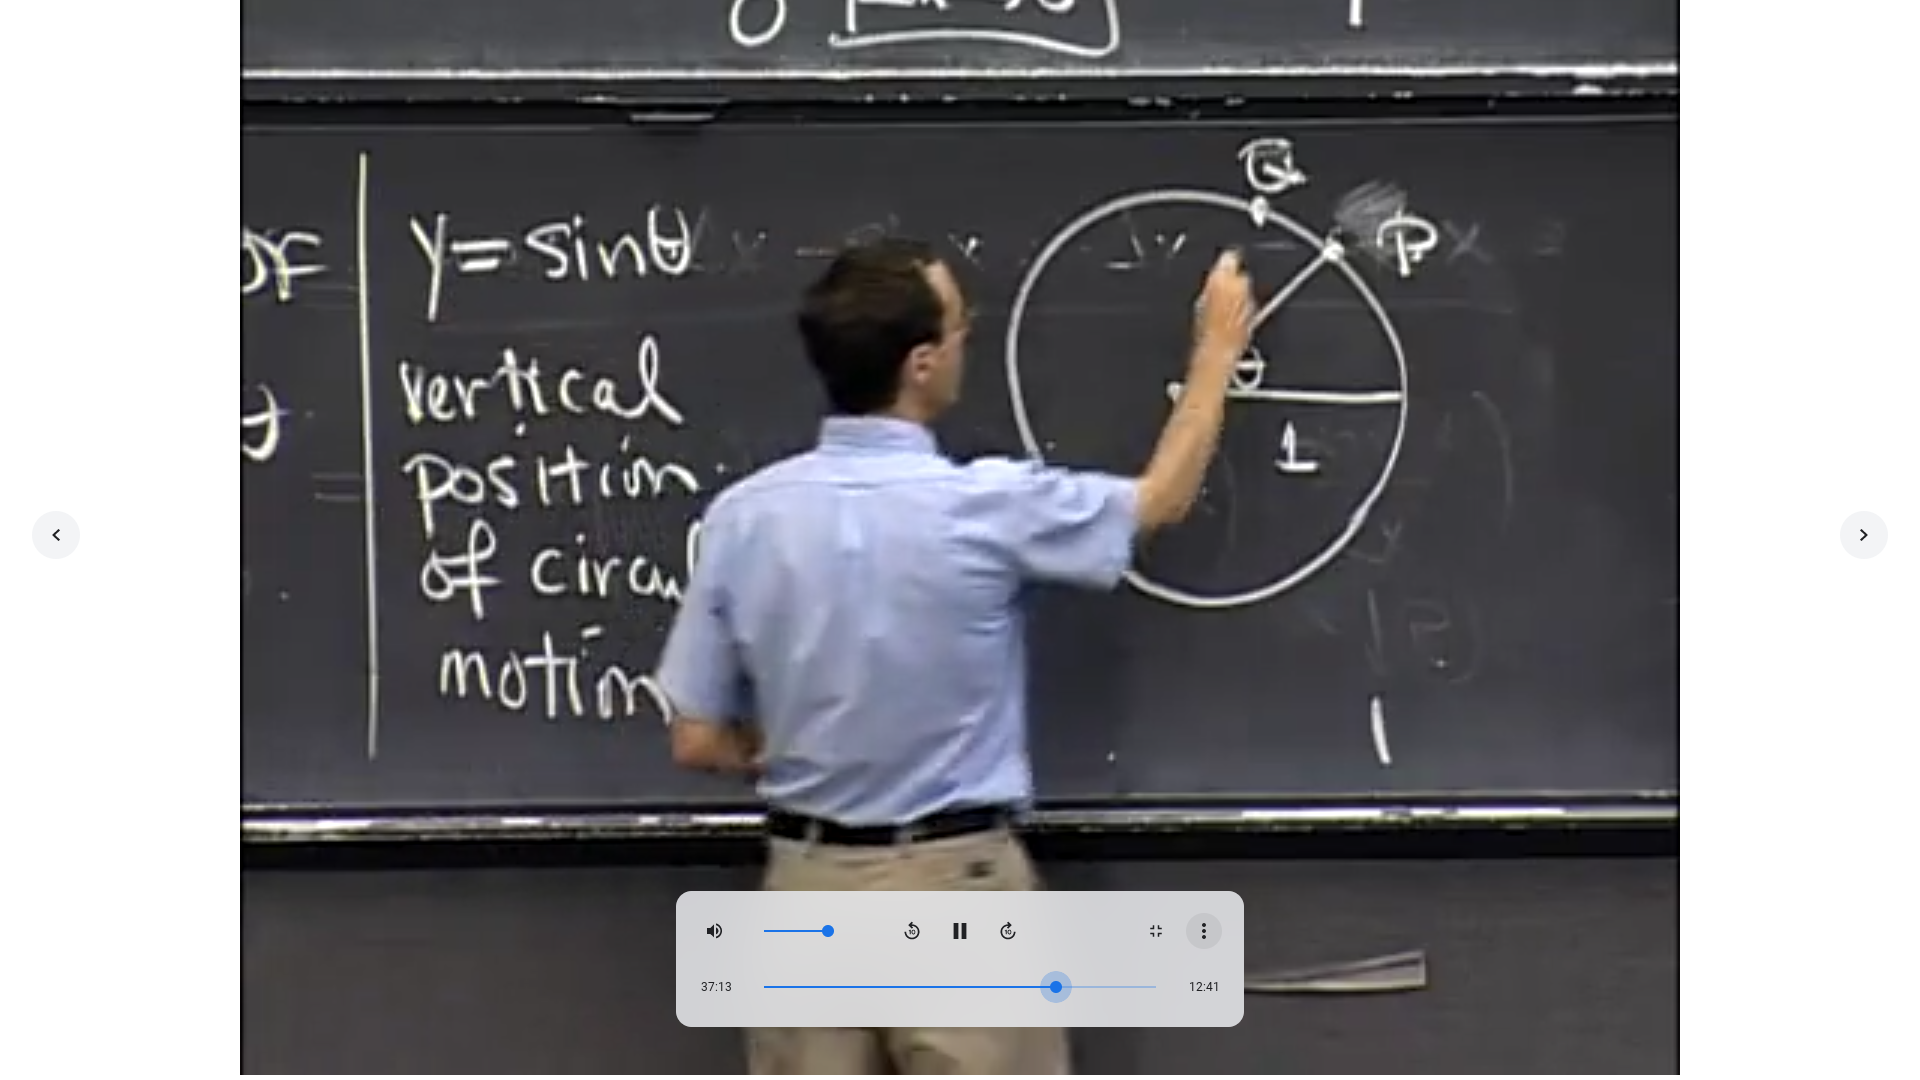 y = sinθ
vertical
position
of circul
motion
Q
P
θ
1
10
10
37:13
12:41